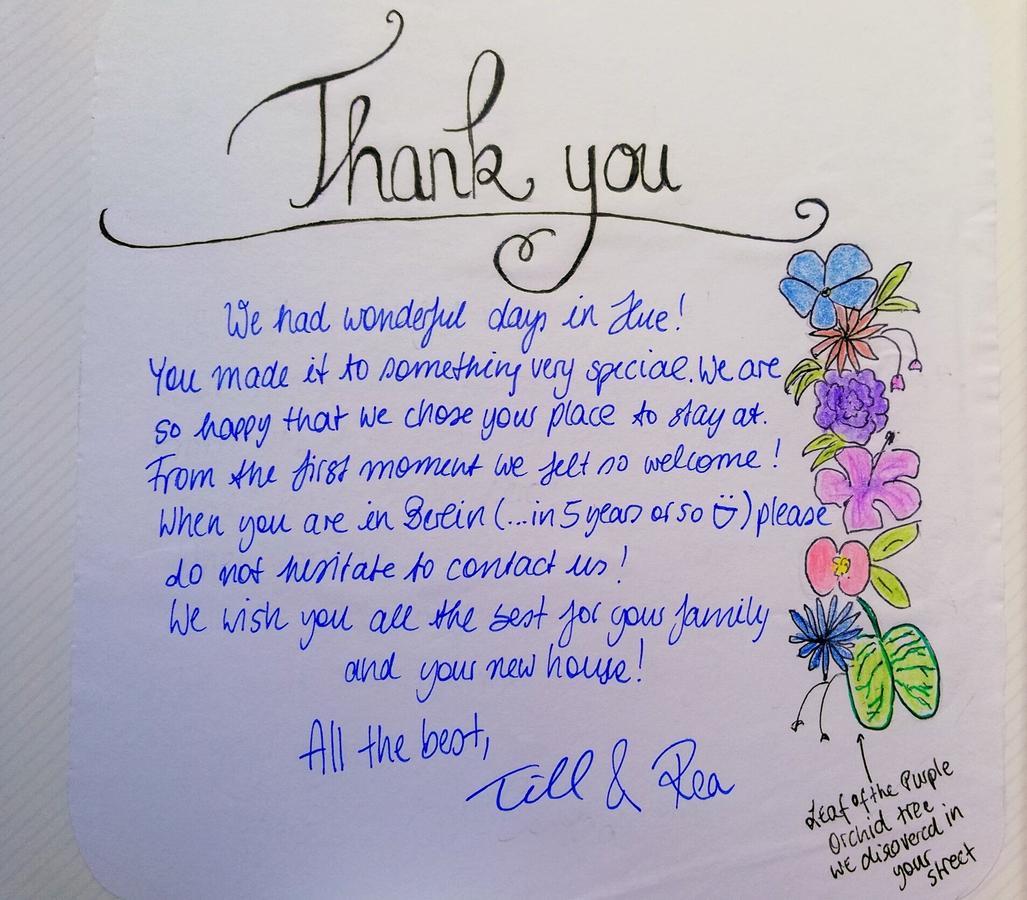 Thank you
We had wonderful days in Hue!
You made it to something very special. We are
so happy that we chose your place to stay at.
From the first moment we felt so welcome!
When you are in Berlin (...in 5 years or so ü) please
do not hesitate to contact us!
We wish you all the best for your family
and your new house!
All the best,
Till & Rea
Leaf of the Purple
Orchid tree
we discovered in
your
street